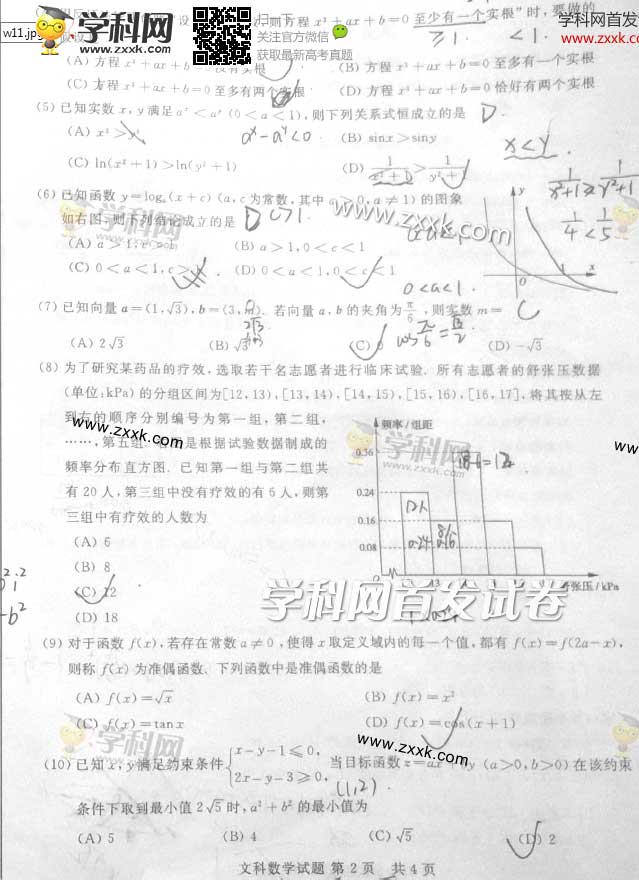 学科网
www.zxxk.com
扫一扫
关注官方微信
获取最新高考真题
学科网高考
www.zxxk.
w11.jp
设 则方程 x³+ax+b=0 至少有一个实根”时，要做的
≥1. <1.
(A) 方程 x³+ax+b=0 没有实根
(B) 方程 x³+ax+b=0 至多有一个实根
(C) 方程 x³+ax+b=0 至多有两个实根
(D) 方程 x³+ax+b=0 恰好有两个实根
(5) 已知实数 x, y 满足 aˣ<aʸ (0<a<1), 则下列关系式恒成立的是 D
(A) x³>y³
aˣ-aʸ<0
(B) sinx>siny
x<y
(C) ln(x²+1)>ln(y²+1)
(D) 1/(x²+1)>1/(y²+1)
1/4 < 1/5
(6) 已知函数 y=logₐ(x+c) (a, c 为常数, 其中 a>0, a≠1) 的图象
如右图, 则下列结论成立的是 D c>1.
www.zxxk.com
学科网
(A) a>1, c>
(B) a>1, 0<c<1
(C) 0<a<1, c>
(D) 0<a<1, 0<c<1
0<a<1.
y
x
O
1
(7) 已知向量 a=(1,√3), b=(3,m). 若向量 a, b 的夹角为 π/6, 则实数 m= C
(A) 2√3
(B) √3
(C) 0
cos π/6 = √3/2
(D) -√3
(8) 为了研究某药品的疗效, 选取若干名志愿者进行临床试验. 所有志愿者的舒张压数据
(单位:kPa) 的分组区间为[12,13), [13,14), [14,15), [15,16), [16,17], 将其按从左
到右的顺序分别编号为第一组, 第二组,
www.zxxk.com
……, 第五组. 是根据试验数据制成的
频率分布直方图. 已知第一组与第二组共
有 20 人, 第三组中没有疗效的有 6 人, 则第
三组中有疗效的人数为
(A) 6
(B) 8
(C) 12
(D) 18
频率/组距
学科网
zxxk.com
0.36
18-6=12
0.24
0.16
0.08
0
12人
0.24
0.16
舒张压/kPa
学科网首发试卷
(9) 对于函数 f(x), 若存在常数 a≠0, 使得 x 取定义域内的每一个值, 都有 f(x)=f(2a-x),
则称 f(x) 为准偶函数、下列函数中是准偶函数的是
(A) f(x)=√x
(B) f(x)=x²
(C) f(x)=tanx
(D) f(x)=cos(x+1)
学科网
www.zxxk.com
(10) 已知 x, y 满足约束条件 {x-y-1≤0, 2x-y-3≥0, 当目标函数 z=ax+by (a>0,b>0) 在该约束
条件下取到最小值 2√5 时, a²+b² 的最小值为
(A) 5
(B) 4
(C) √5
(D) 2
文科数学试题 第 2 页 共 4 页